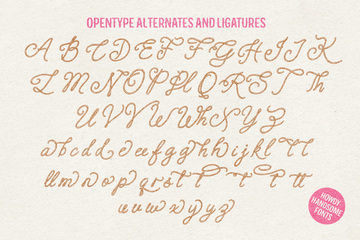 OPENTYPE ALTERNATES AND LIGATURES
A B C D E F F G H I J K
L M N O P Pl Q R S T Th
U V V W Wh X Y Z
a b c d d e e f g g h h i j k l l
ll m n o p q r s t t t t
u v w x y z z
HOWDY,
HANDSOME
FONTS